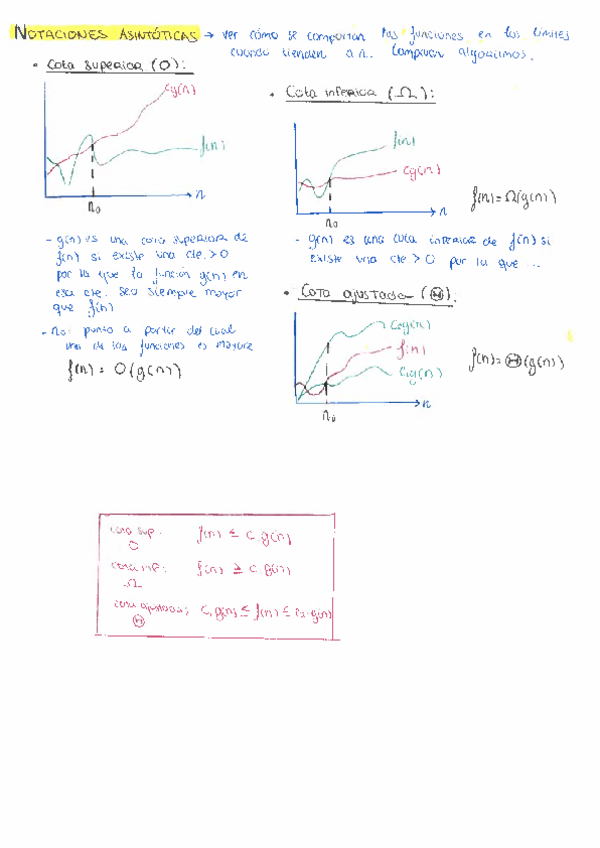 NOTACIONES ASINTÓTICAS → ver cómo se comportan las funciones en los límites
cuando tienden a n. Comparar algoritmos.
• Cota superior (O):
cg(n)
f(n)
n
n₀
- g(n) es una cota superior de
f(n) si existe una cte. > 0
por la que la función g(n) en
esa cte. sea siempre mayor
que f(n)
- n₀: punto a partir del cual
una de las funciones es mayor
f(n) = O(g(n))
• Cota inferior (Ω):
f(n)
cg(n)
n
n₀
f(n) = Ω(g(n))
- g(n) es una cota inferior de f(n) si
existe una cte > 0 por la que ...
• Cota ajustada (Θ):
C₂g(n)
f(n)
C₁g(n)
n
n₀
f(n) = Θ(g(n))
cota sup.: f(n) ≤ c·g(n)
O
cota inf.: f(n) ≥ c·g(n)
Ω
cota ajustada: C₁g(n) ≤ f(n) ≤ C₂·g(n)
Θ